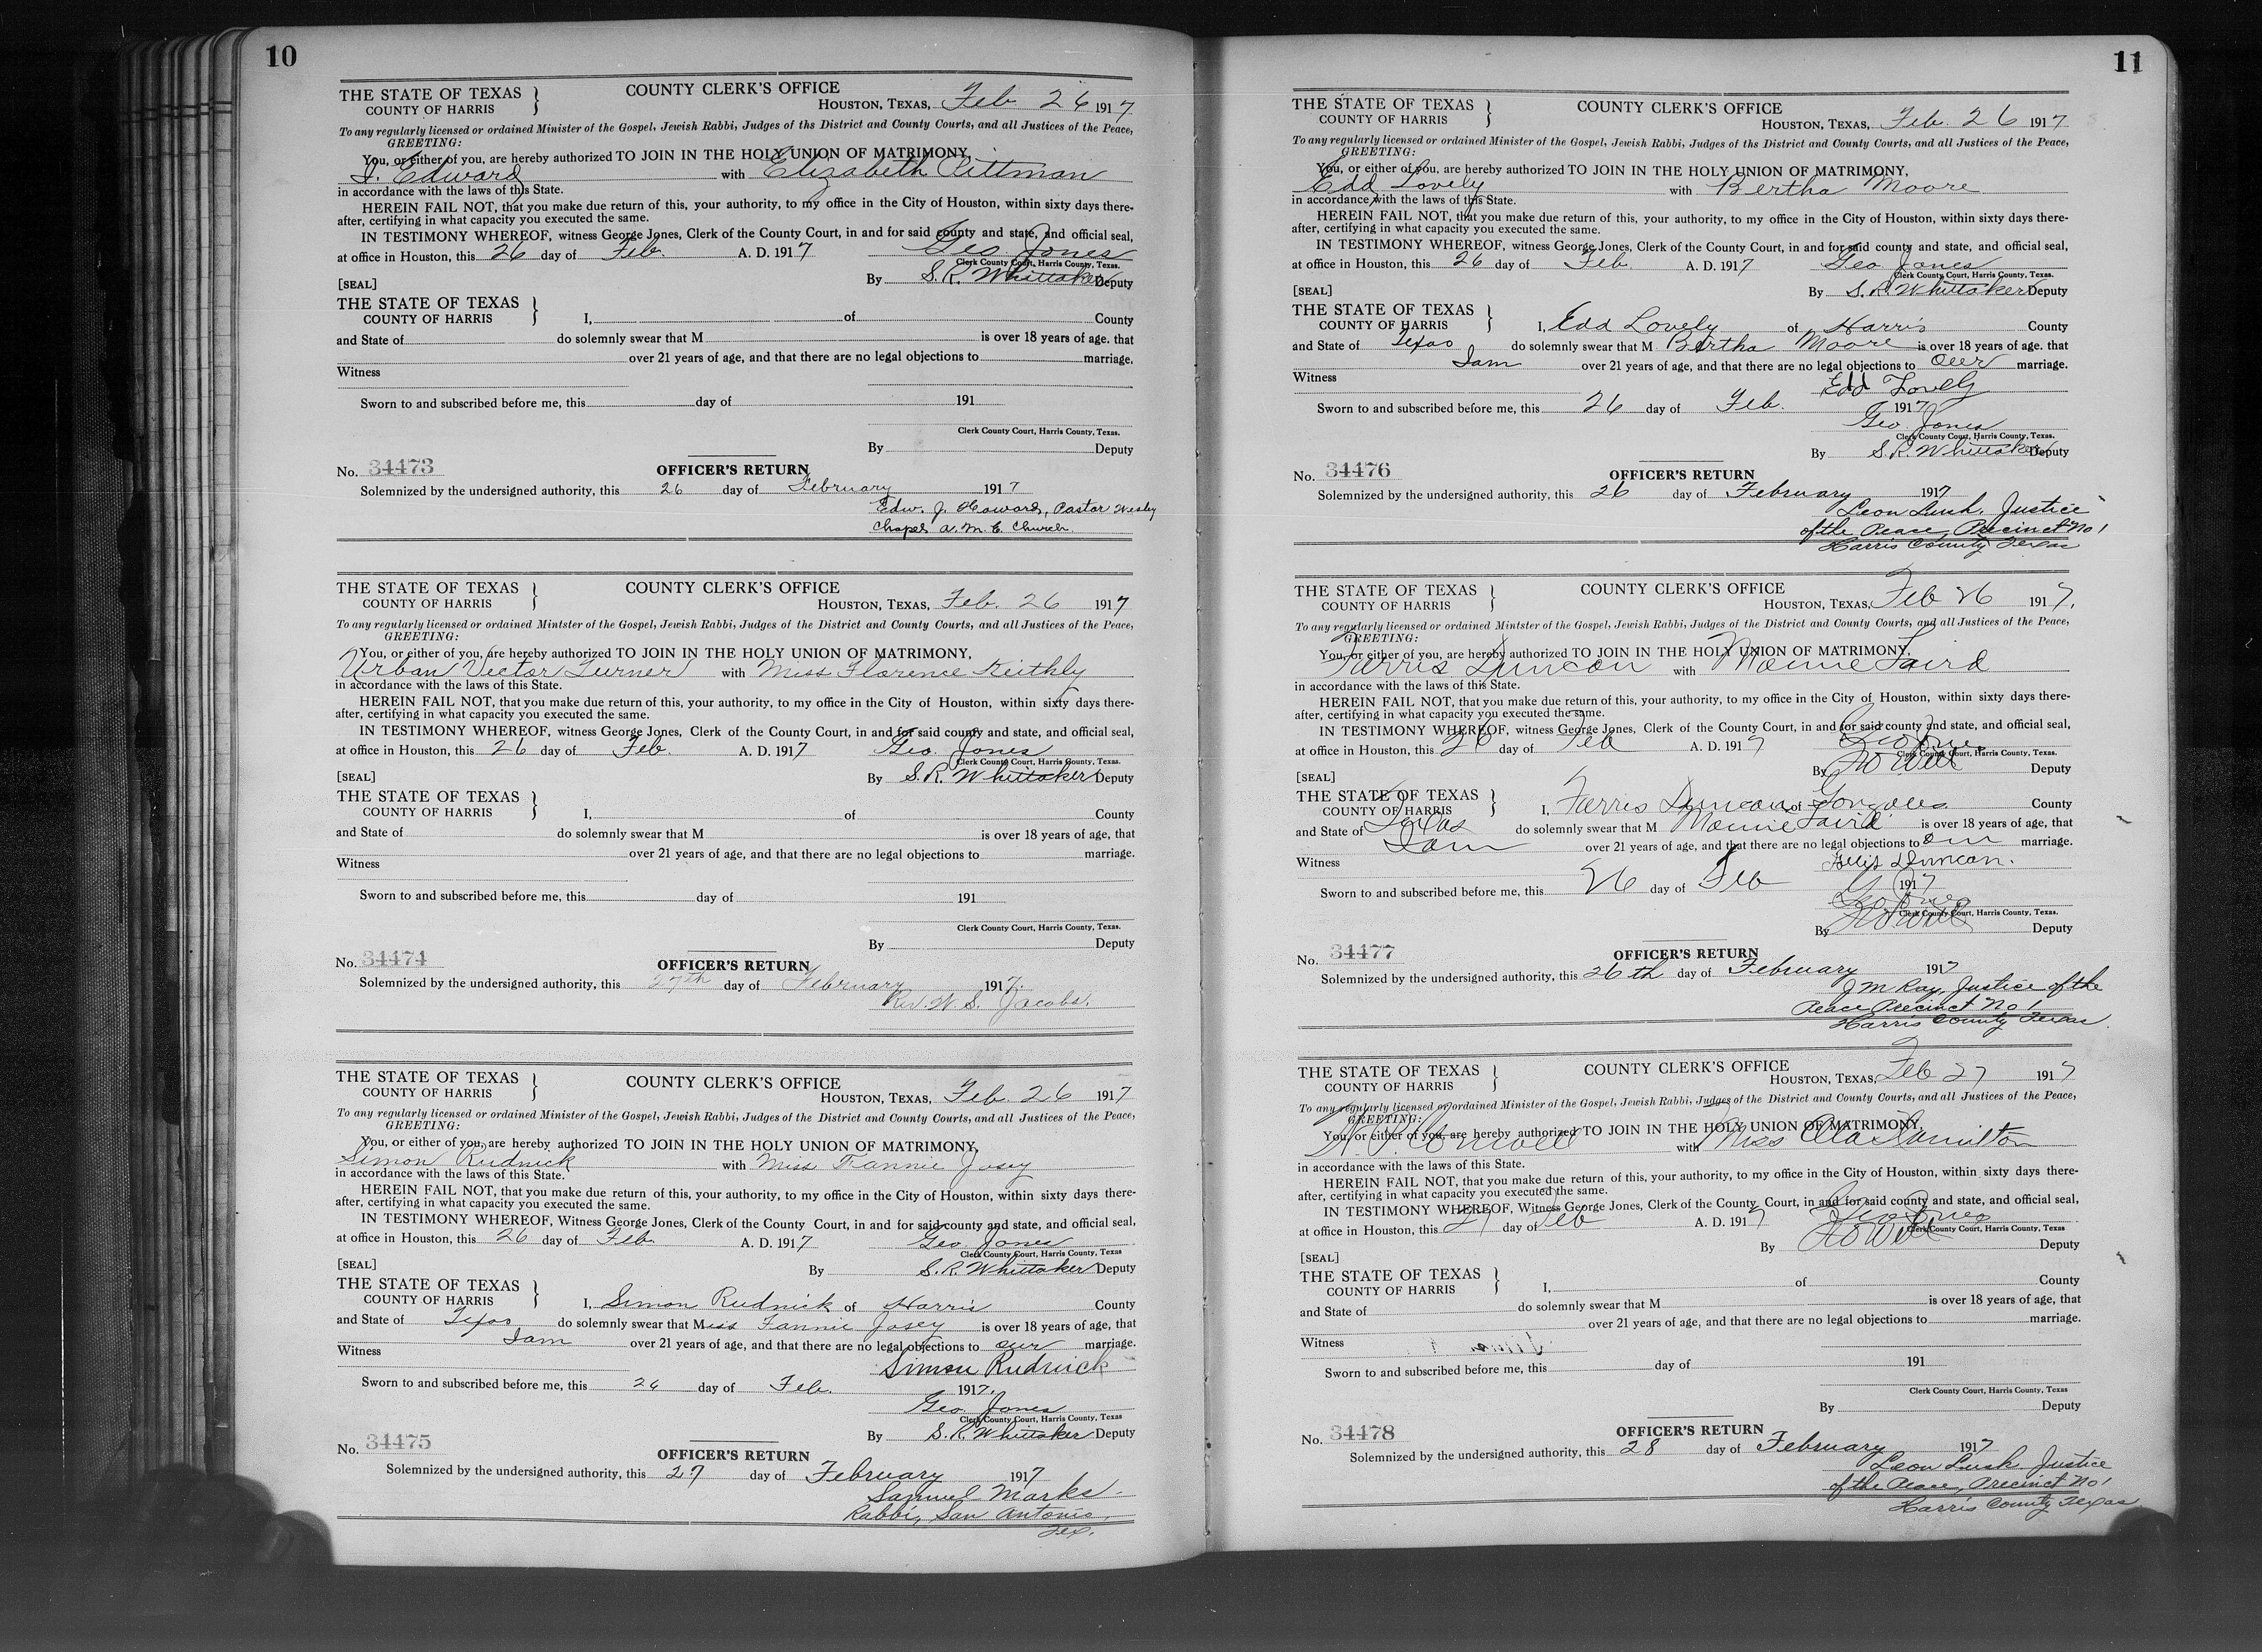 10
THE STATE OF TEXAS
COUNTY OF HARRIS
COUNTY CLERK'S OFFICE
HOUSTON, TEXAS, Feb 26 1917
To any regularly licensed or ordained Minister of the Gospel, Jewish Rabbi, Judges of ths District and County Courts, and all Justices of the Peace,
GREETING:
You, or either of you, are hereby authorized TO JOIN IN THE HOLY UNION OF MATRIMONY,
I. Edward with Elizabeth Pittman
in accordance with the laws of this State.
HEREIN FAIL NOT, that you make due return of this, your authority, to my office in the City of Houston, within sixty days there-
after, certifying in what capacity you executed the same.
IN TESTIMONY WHEREOF, witness George Jones, Clerk of the County Court, in and for said county and state, and official seal,
at office in Houston, this 26 day of Feb. A. D. 1917 Geo Jones
Clerk County Court, Harris County, Texas.
[SEAL] By S. R. Whittaker Deputy
THE STATE OF TEXAS
COUNTY OF HARRIS I, of County
and State of do solemnly swear that M is over 18 years of age. that
over 21 years of age, and that there are no legal objections to marriage.
Witness
Sworn to and subscribed before me, this day of 191
Clerk County Court, Harris County, Texas.
By Deputy
No. 34473 OFFICER'S RETURN
Solemnized by the undersigned authority, this 26 day of February 1917
Edw. J. Howard, Pastor Wesley
Chapel A. M. E. Church.
THE STATE OF TEXAS
COUNTY OF HARRIS
COUNTY CLERK'S OFFICE
HOUSTON, TEXAS, Feb. 26 1917
To any regularly licensed or ordained Mintster of the Gospel, Jewish Rabbi, Judges of the District and County Courts, and all Justices of the Peace,
GREETING:
You, or either of you, are hereby authorized TO JOIN IN THE HOLY UNION OF MATRIMONY,
Urban Victor Turner with Miss Florence Keithly
in accordance with the laws of this State.
HEREIN FAIL NOT, that you make due return of this, your authority, to my office in the City of Houston, within sixty days there-
after, certifying in what capacity you executed the same.
IN TESTIMONY WHEREOF, witness George Jones, Clerk of the County Court, in and for said county and state, and official seal,
at office in Houston, this 26 day of Feb. A. D. 1917 Geo. Jones
Clerk County Court, Harris County, Texas.
[SEAL] By S. R. Whittaker Deputy
THE STATE OF TEXAS
COUNTY OF HARRIS I, of County
and State of do solemnly swear that M is over 18 years of age, that
over 21 years of age, and that there are no legal objections to marriage.
Witness
Sworn to and subscribed before me, this day of 191
Clerk County Court, Harris County, Texas.
By Deputy
No. 34474 OFFICER'S RETURN
Solemnized by the undersigned authority, this 27th day of February 1917.
Rev. W. S. Jacobs.
THE STATE OF TEXAS
COUNTY OF HARRIS
COUNTY CLERK'S OFFICE
HOUSTON, TEXAS, Feb. 26 1917
To any regularly licensed or ordained Minister of the Gospel, Jewish Rabbi, Judges of the District and County Courts, and all Justices of the Peace,
GREETING:
You, or either of you, are hereby authorized TO JOIN IN THE HOLY UNION OF MATRIMONY,
Simon Rudnick with Miss Fannie Josey
in accordance with the laws of this State.
HEREIN FAIL NOT, that you make due return of this, your authority, to my office in the City of Houston, within sixty days there-
after, certifying in what capacity you executed the same.
IN TESTIMONY WHEREOF, Witness George Jones, Clerk of the County Court, in and for said county and state, and official seal,
at office in Houston, this 26 day of Feb. A. D. 1917 Geo. Jones
Clerk County Court, Harris County, Texas
[SEAL] By S. R. Whittaker Deputy
THE STATE OF TEXAS
COUNTY OF HARRIS I, Simon Rudnick of Harris County
and State of Texas do solemnly swear that Miss Fannie Josey is over 18 years of age, that
I am over 21 years of age, and that there are no legal objections to our marriage.
Witness Simon Rudnick
Sworn to and subscribed before me, this 26 day of Feb. 1917.
Geo. Jones
Clerk County Court, Harris County, Texas
By S. R. Whittaker Deputy
No. 34475 OFFICER'S RETURN
Solemnized by the undersigned authority, this 27 day of February 1917
Samuel Marks
Rabbi, San Antonio,
Tex.
11
THE STATE OF TEXAS
COUNTY OF HARRIS
COUNTY CLERK'S OFFICE
HOUSTON, TEXAS, Feb. 26 1917
To any regularly licensed or ordained Minister of the Gospel, Jewish Rabbi, Judges of ths District and County Courts, and all Justices of the Peace,
GREETING:
You, or either of you, are hereby authorized TO JOIN IN THE HOLY UNION OF MATRIMONY,
Edd Lovely with Bertha Moore
in accordance with the laws of this State.
HEREIN FAIL NOT, that you make due return of this, your authority, to my office in the City of Houston, within sixty days there-
after, certifying in what capacity you executed the same.
IN TESTIMONY WHEREOF, witness George Jones, Clerk of the County Court, in and for said county and state, and official seal,
at office in Houston, this 26 day of Feb. A. D. 1917 Geo Jones
Clerk County Court, Harris County, Texas.
[SEAL] By S. R. Whittaker Deputy
THE STATE OF TEXAS
COUNTY OF HARRIS I, Edd Lovely of Harris County
and State of Texas do solemnly swear that M Bertha Moore is over 18 years of age. that
I am over 21 years of age, and that there are no legal objections to our marriage.
Witness Edd Lovely
Sworn to and subscribed before me, this 26 day of Feb. 1917
Geo. Jones
Clerk County Court, Harris County, Texas.
By S. R. Whittaker Deputy
No. 34476 OFFICER'S RETURN
Solemnized by the undersigned authority, this 26 day of February 1917
Leon Lusk, Justice
of the Peace, Precinct No 1
Harris County Texas
THE STATE OF TEXAS
COUNTY OF HARRIS
COUNTY CLERK'S OFFICE
HOUSTON, TEXAS, Feb 26 1917.
To any regularly licensed or ordained Mintster of the Gospel, Jewish Rabbi, Judges of the District and County Courts, and all Justices of the Peace,
GREETING:
You, or either of you, are hereby authorized TO JOIN IN THE HOLY UNION OF MATRIMONY,
Farris Duncan with
in accordance with the laws of this State.
HEREIN FAIL NOT, that you make due return of this, your authority, to my office in the City of Houston, within sixty days there-
after, certifying in what capacity you executed the same.
IN TESTIMONY WHEREOF, witness George Jones, Clerk of the County Court, in and for said county and state, and official seal,
at office in Houston, this 26 day of Feb A. D. 1917 Geo Jones
Clerk County Court, Harris County, Texas.
[SEAL] By Deputy
THE STATE OF TEXAS
COUNTY OF HARRIS I, Farris Duncan of Gonzales County
and State of Texas do solemnly swear that M is over 18 years of age, that
I am over 21 years of age, and that there are no legal objections to our marriage.
Witness Duncan.
Sworn to and subscribed before me, this 26 day of Feb 1917
Geo Jones
Clerk County Court, Harris County, Texas.
By Deputy
No. 34477 OFFICER'S RETURN
Solemnized by the undersigned authority, this 26th day of February 1917
J M Ray, Justice of the
Peace Precinct No 1
Harris County Texas.
THE STATE OF TEXAS
COUNTY OF HARRIS
COUNTY CLERK'S OFFICE
HOUSTON, TEXAS, Feb 27 1917
To any regularly licensed or ordained Minister of the Gospel, Jewish Rabbi, Judges of the District and County Courts, and all Justices of the Peace,
GREETING:
You, or either of you, are hereby authorized TO JOIN IN THE HOLY UNION OF MATRIMONY,
with Miss Hamilton
in accordance with the laws of this State.
HEREIN FAIL NOT, that you make due return of this, your authority, to my office in the City of Houston, within sixty days there-
after, certifying in what capacity you executed the same.
IN TESTIMONY WHEREOF, Witness George Jones, Clerk of the County Court, in and for said county and state, and official seal,
at office in Houston, this 27 day of Feb A. D. 1917 Geo Jones
Clerk County Court, Harris County, Texas
[SEAL] By Deputy
THE STATE OF TEXAS
COUNTY OF HARRIS I, of County
and State of do solemnly swear that M is over 18 years of age, that
over 21 years of age, and that there are no legal objections to marriage.
Witness
Sworn to and subscribed before me, this day of 191
Clerk County Court, Harris County, Texas
By Deputy
No. 34478 OFFICER'S RETURN
Solemnized by the undersigned authority, this 28 day of February 1917
Leon Lusk Justice
of the Peace, Precinct No 1
Harris County Texas